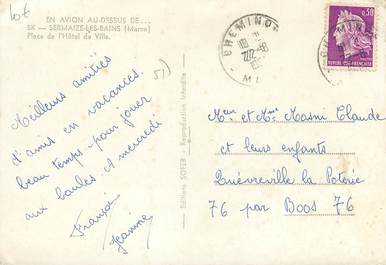 10€
EN AVION AU-DESSUS DE...
5K — SERMAIZE-LES-BAINS (Marne)
Place de l'Hôtel de Ville.
51)
Meilleurs amitiés
d'amis en vacances.
beau temps - pour jouer
aux boules. A mercredi
François
Jeannine
Editions SOFER - Reproduction Interdite
CHEMINOT
0,30
REPUBLIQUE FRANÇAISE
CHEMINOT
Mr et Mme Masni Claude
et leurs enfants
Quévreville la Poterie
76 par Boos 76